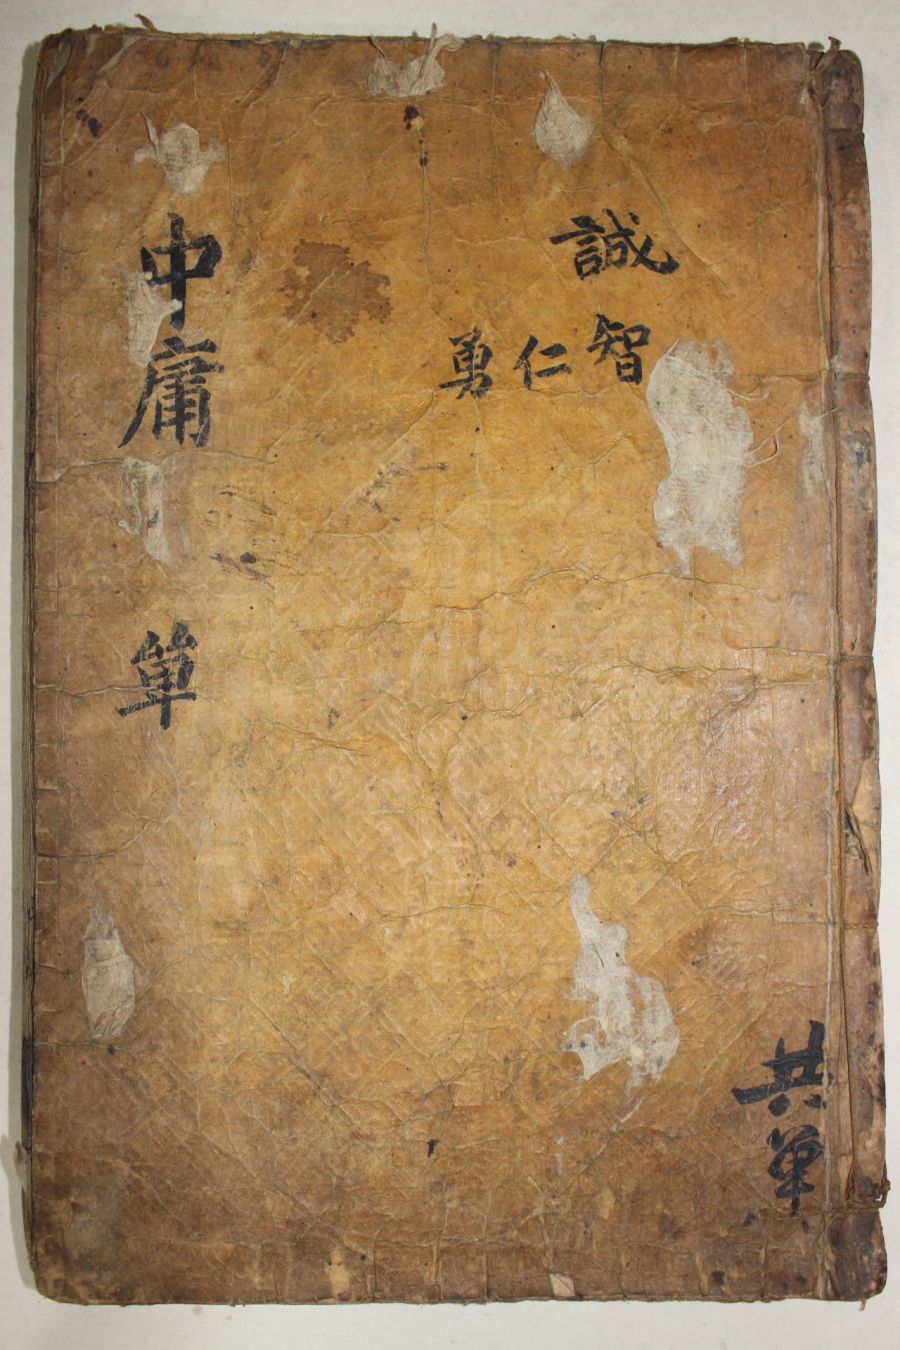 中庸 單
誠
智仁勇
共單